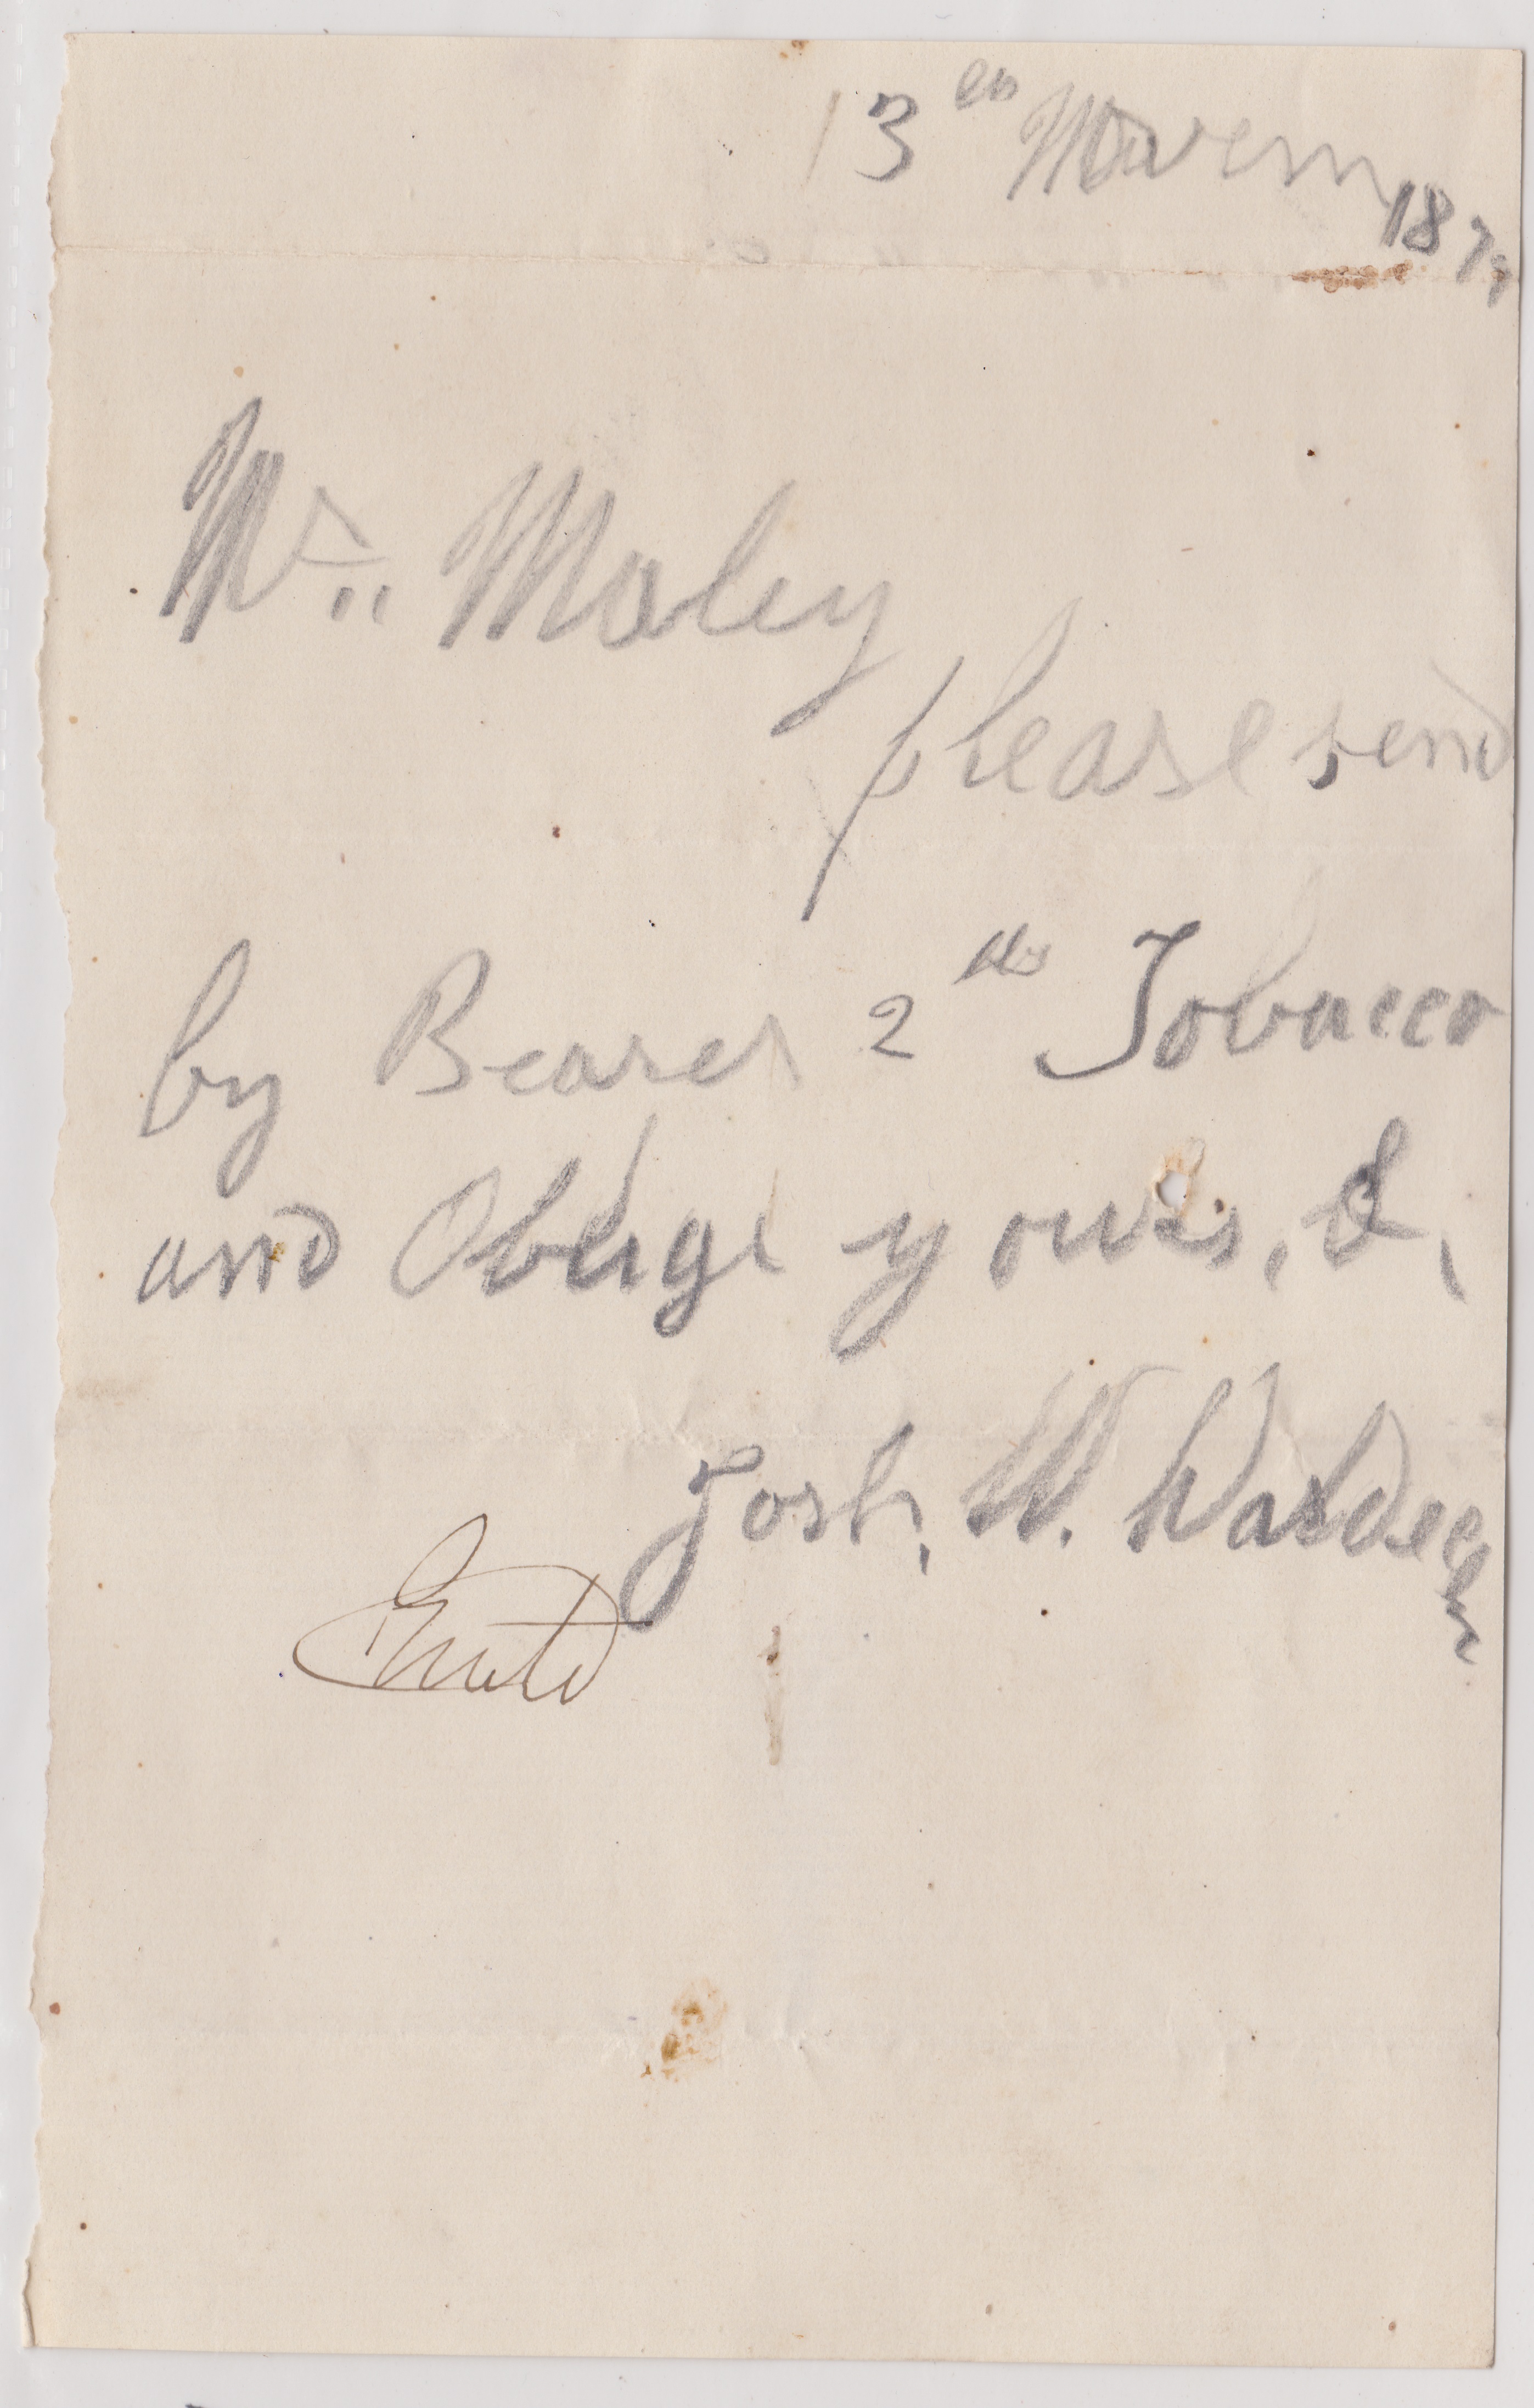 13th Novem
187
Mr. Maley
please send
by Bearer 2 lbs Tobacco
and Oblige yours, &,
Josh. W.
Entd